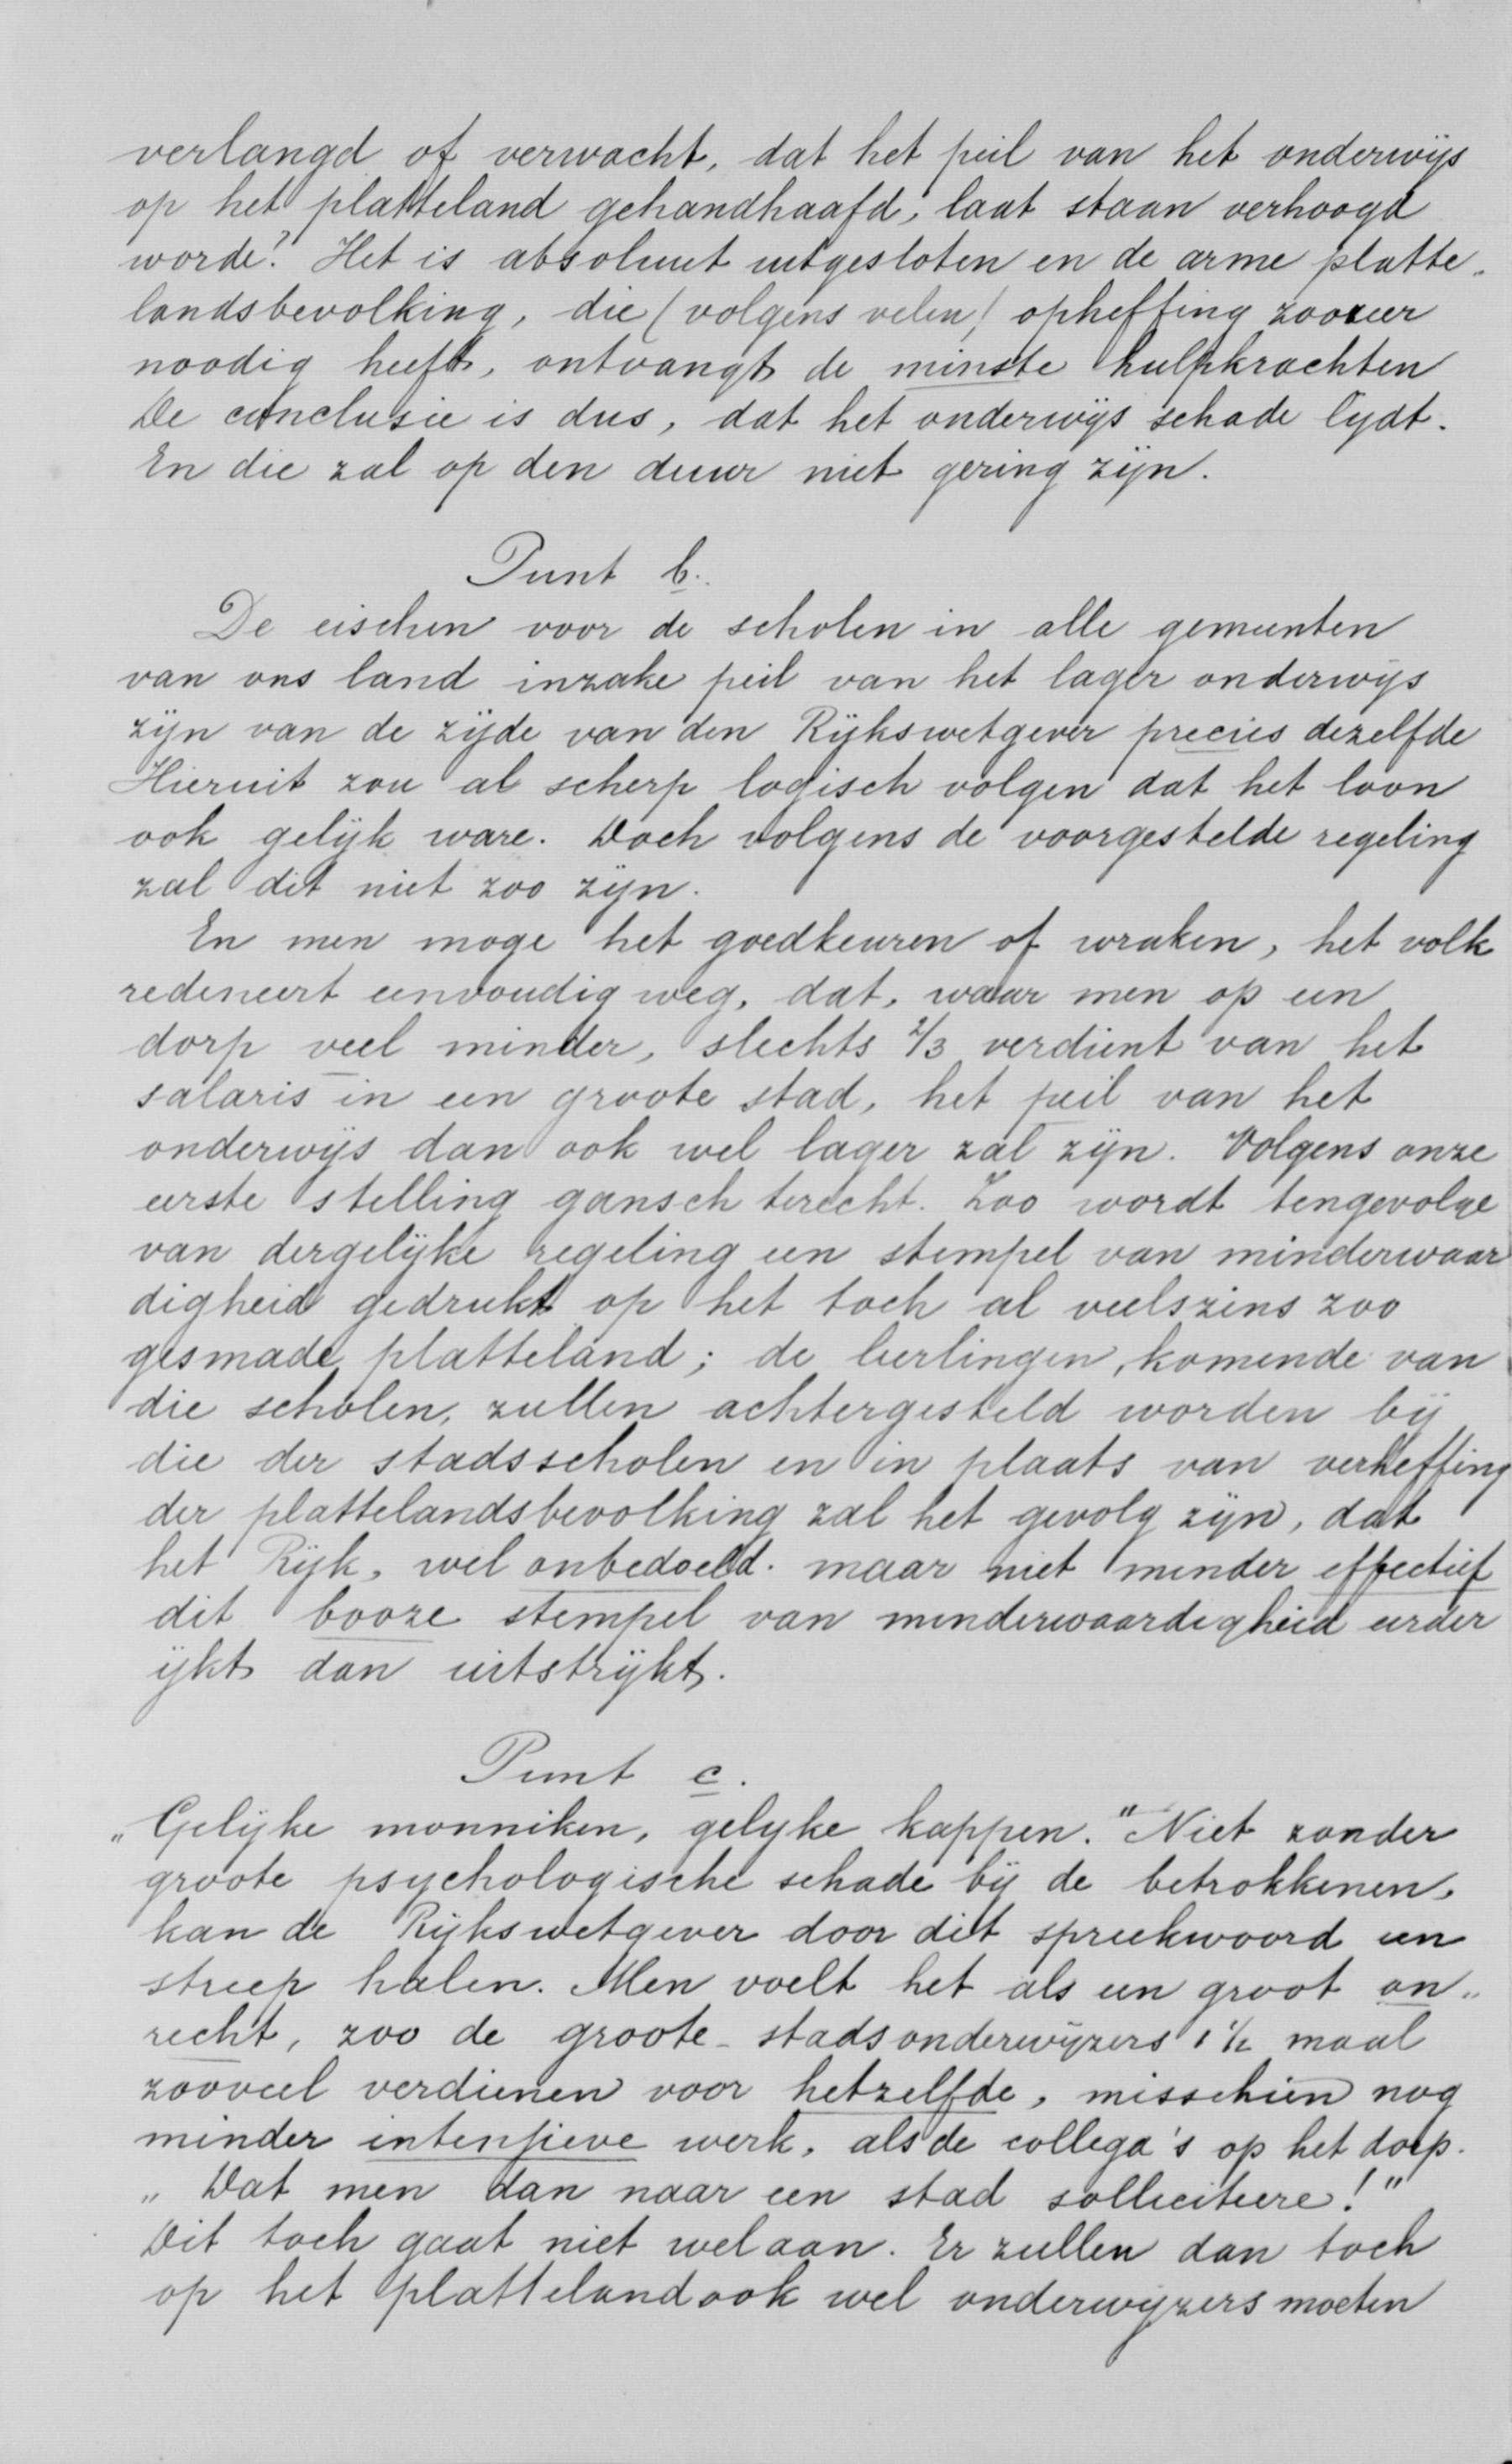 verlangd of verwacht, dat het peil van het onderwijs
op het platteland gehandhaafd, laat staan verhoogd
worde? Het is absoluut uitgesloten en de arme platte-
landsbevolking, die (volgens velen) opheffing zoozeer
noodig heeft, ontvangt de minste hulpkrachten
De conclusie is dus, dat het onderwijs schade lijdt.
En die zal op den duur niet gering zijn.
Punt b.
De eischen voor de scholen in alle gemeenten
van ons land inzake peil van het lager onderwijs
zijn van de zijde van den Rijkswetgever precies dezelfde
Hieruit zou al scherp logisch volgen dat het loon
ook gelijk ware. Doch volgens de voorgestelde regeling
zal dit niet zoo zijn.
En men moge het goedkeuren of wraken, het volk
redeneert eenvoudig weg, dat, waar men op een
dorp veel minder, slechts 2/3 verdient van het
salaris in een groote stad, het peil van het
onderwijs dan ook wel lager zal zijn. Volgens onze
eerste stelling gansch terecht. Zoo wordt tengevolge
van dergelijke regeling een stempel van minderwaar
digheid gedrukt op het toch al veelszins zoo
gesmade platteland; de leerlingen, komende van
die scholen, zullen achtergesteld worden bij
die der stadsscholen en in plaats van verheffing
der plattelandsbevolking zal het gevolg zijn, dat
het Rijk, wel onbedoeld. maar niet minder effectief
dit booze stempel van minderwaardigheid eerder
ijkt dan uitstrijkt.
Punt c.
„Gelijke monniken, gelijke kappen." Niet zonder
groote psychologische schade bij de betrokkenen,
kan de Rijkswetgever door dit spreekwoord een
streep halen. Men voelt het als een groot on„
recht, zoo de groote-stadsonderwijzers 1½ maal
zooveel verdienen voor hetzelfde, misschien nog
minder intensieve werk, als de collega's op het dorp.
„Dat men dan naar een stad solliciteere!"
Dit toch gaat niet wel aan. Er zullen dan toch
op het platteland ook wel onderwijzers moeten